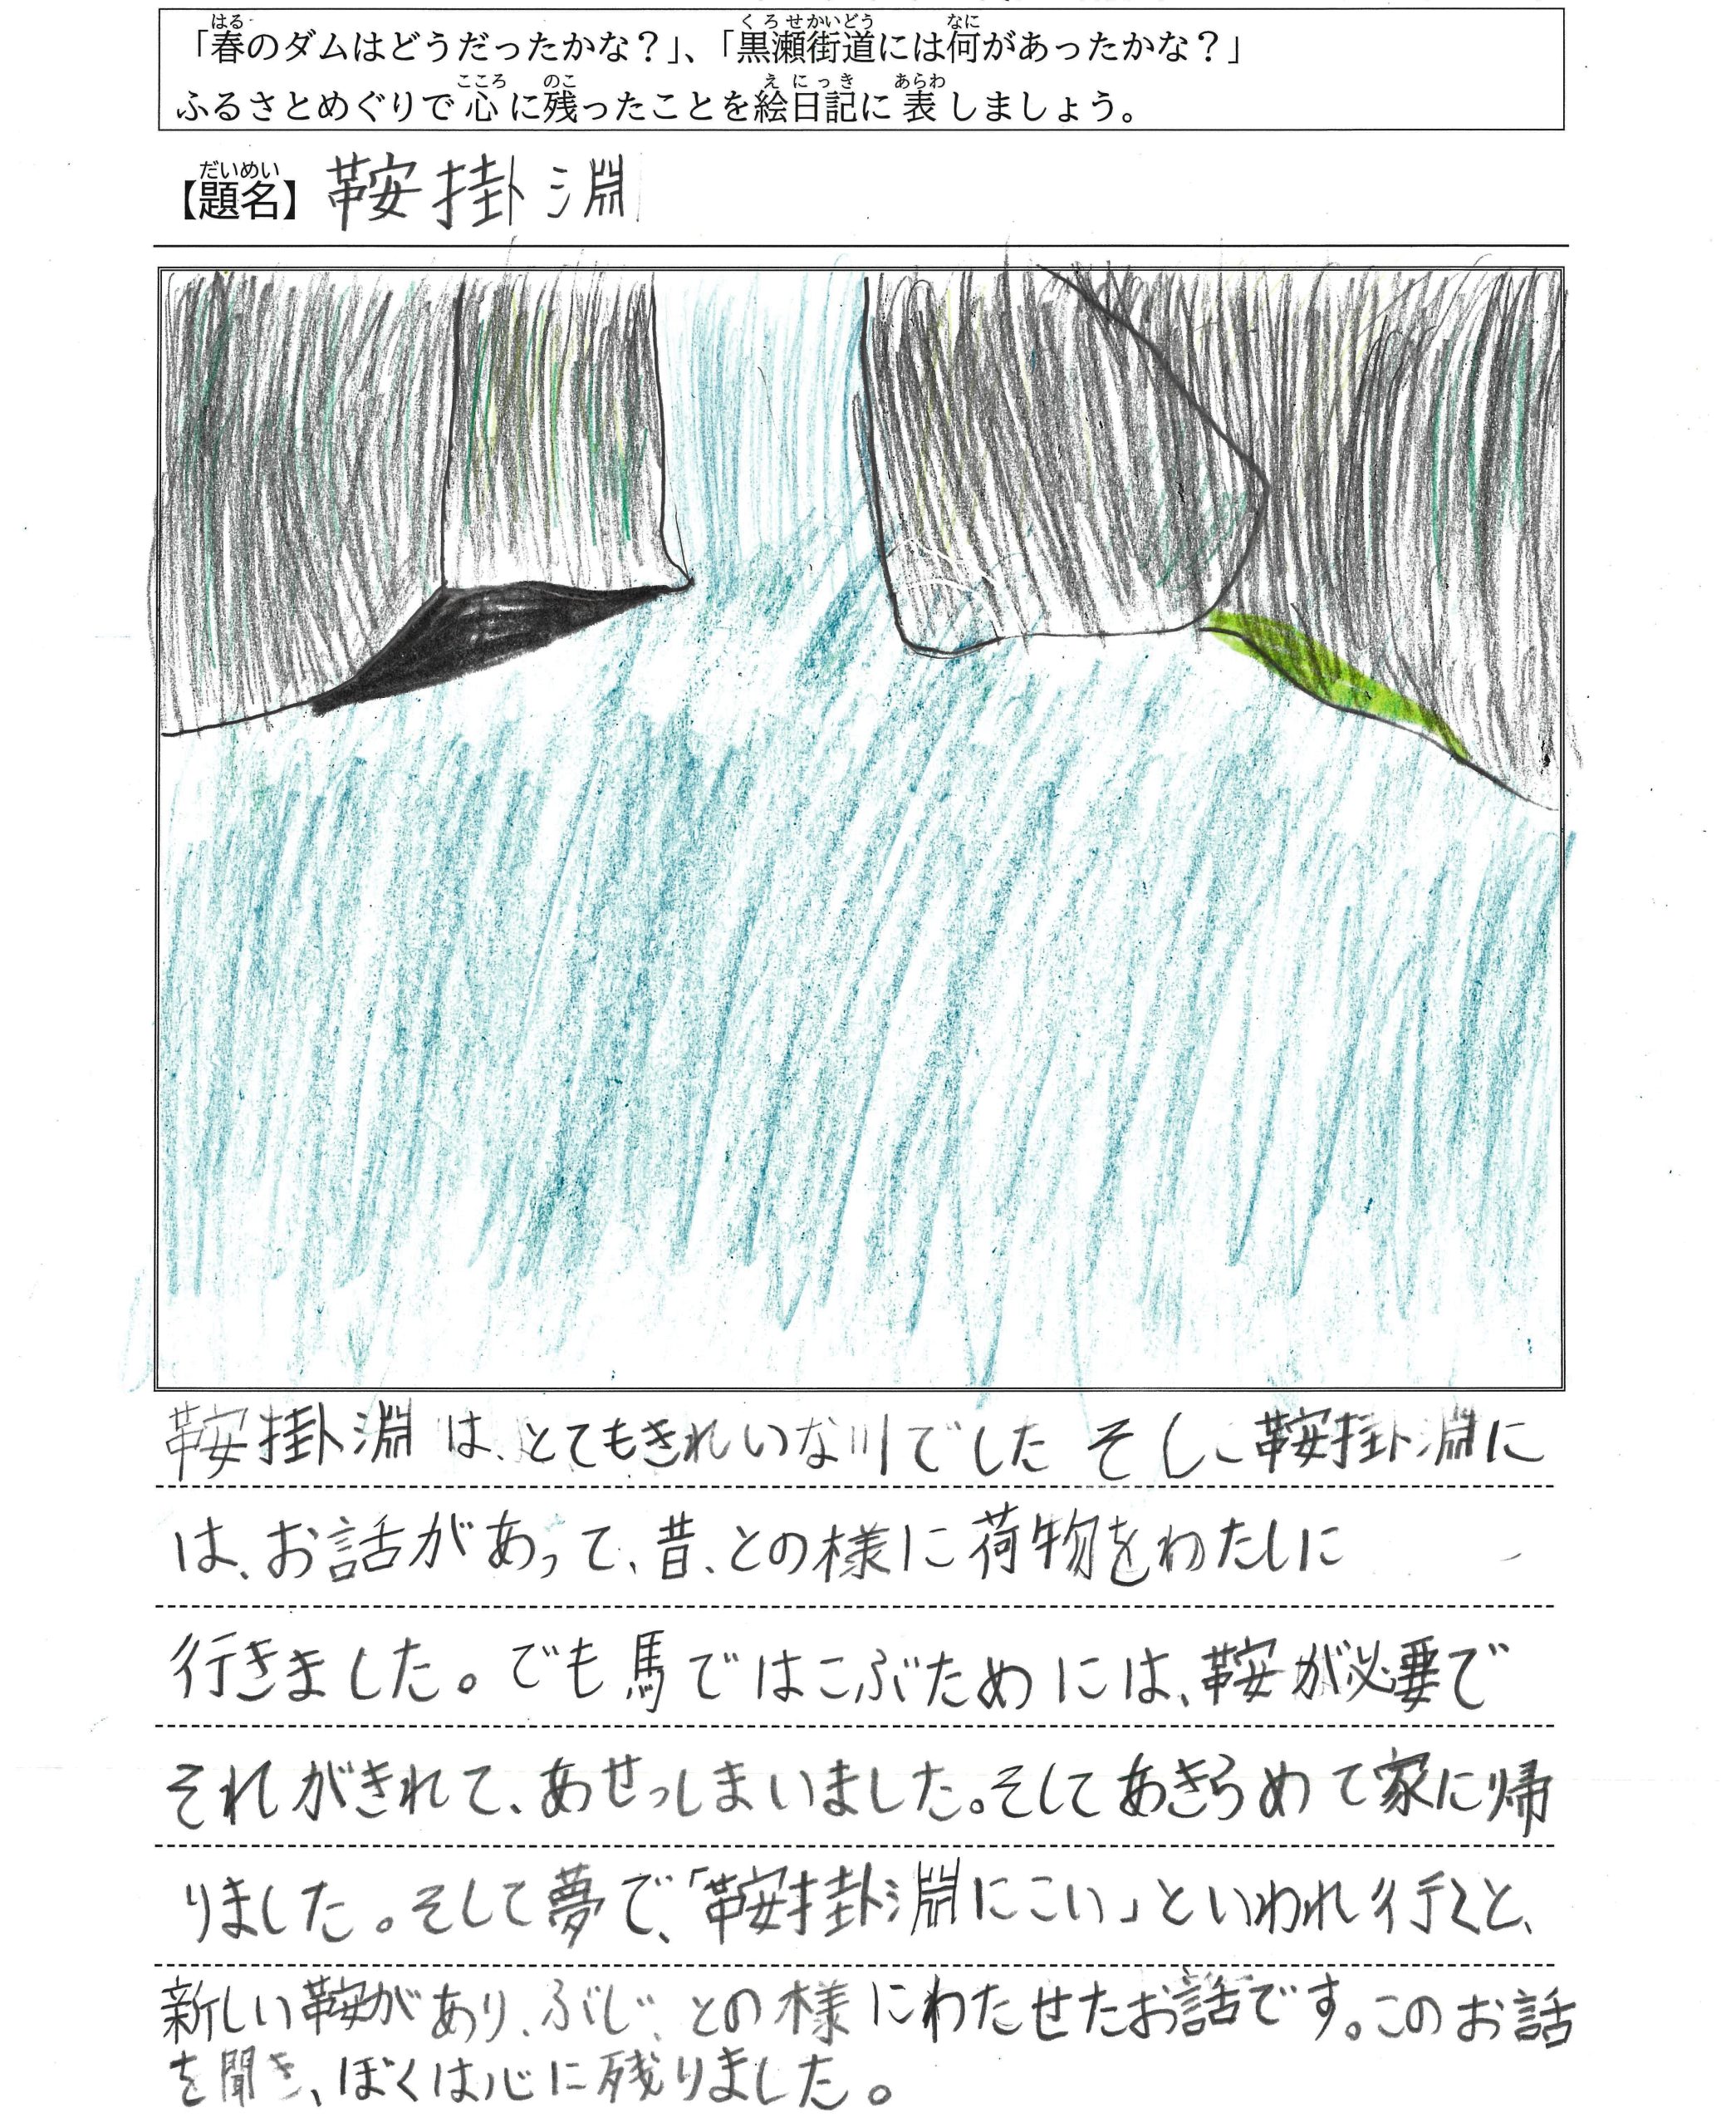 「春のダムはどうだったかな？」、「黒瀬街道には何があったかな？」
ふるさとめぐりで心に残ったことを絵日記に表しましょう。
【題名】鞍掛淵
鞍掛淵は、とてもきれいな川でした そして鞍掛淵に
は、お話があって、昔、との様に荷物をわたしに
行きました。でも馬ではこぶためには、鞍が必要で
それがきれて、あせっしまいました。そしてあきらめて家に帰
りました。そして夢で、「鞍掛淵にこい」といわれ行くと、
新しい鞍があり、ぶじ、との様にわたせたお話です。このお話
を聞き、ぼくは心に残りました。